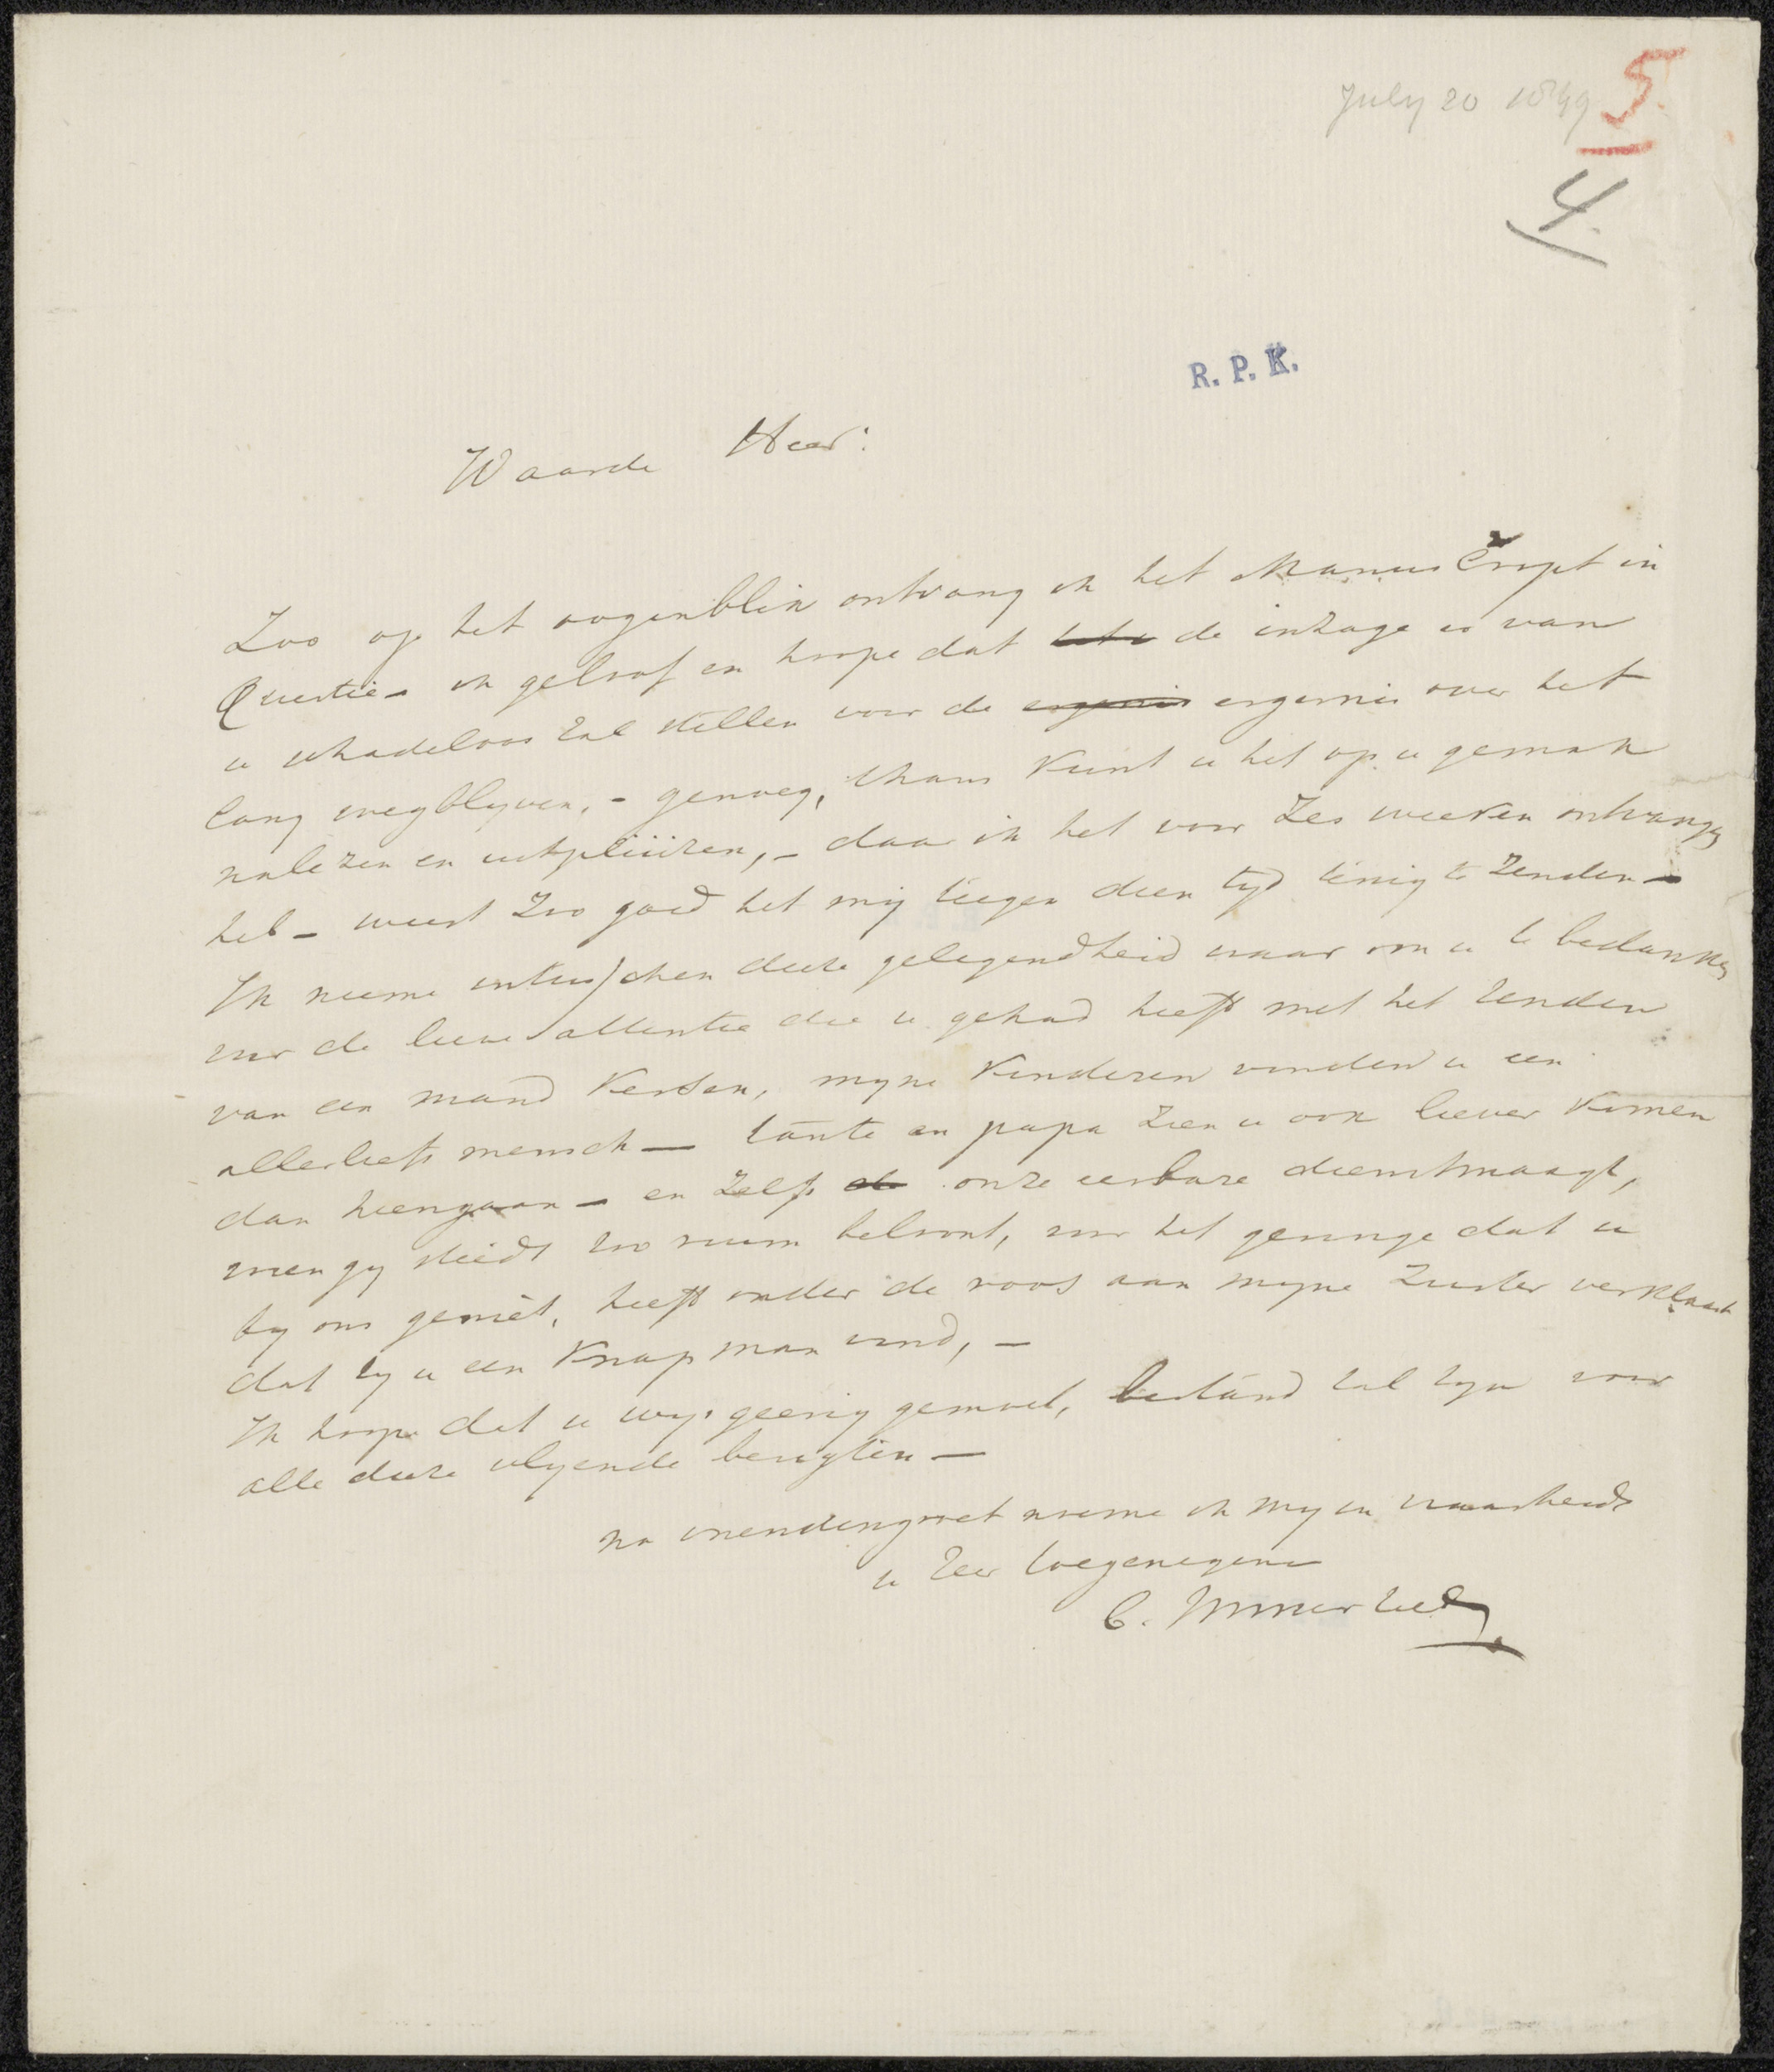 July 20 1849
5
4.
R. P. K.
Waarde Heer:
Zoo op het oogenblik ontvang ik het Manuscript in
Questie - ik geloof en hoope dat de inzage er van
u schadeloos zal stellen voor de ergernis over het
lang wegblyven, - genoeg, thans kunt u het op u gemak
nalezen en uitpluizen, - daar ik het voor zes weeken ontvangen
heb - weest zoo goed het mij teegen dien tyd terug te zenden -
Ik neeme intusschen deeze gelegendheid waar om u te bedanken
voor de lieve attentie die u gehad heeft met het zenden
van een mand kersen, myne kinderen vinden u een
allerliefst mensch - tante en papa zien u ook liever komen
dan heengaan - en zelfs onze eerbare dienstmaagt,
wien gy steeds zoo ruim beloont, voor het geringe dat u
by ons geniet, heeft onder de roos aan myne zuster verklaart
dat zy u een knap man vind, -
Ik hoope dat u wysgeerig gemoed, bestand zal zyn voor
alle deeze vlyende berigten -
na vriendengroet noeme ik my in waarheid
u zeer toegenegene
C. Immerzeel